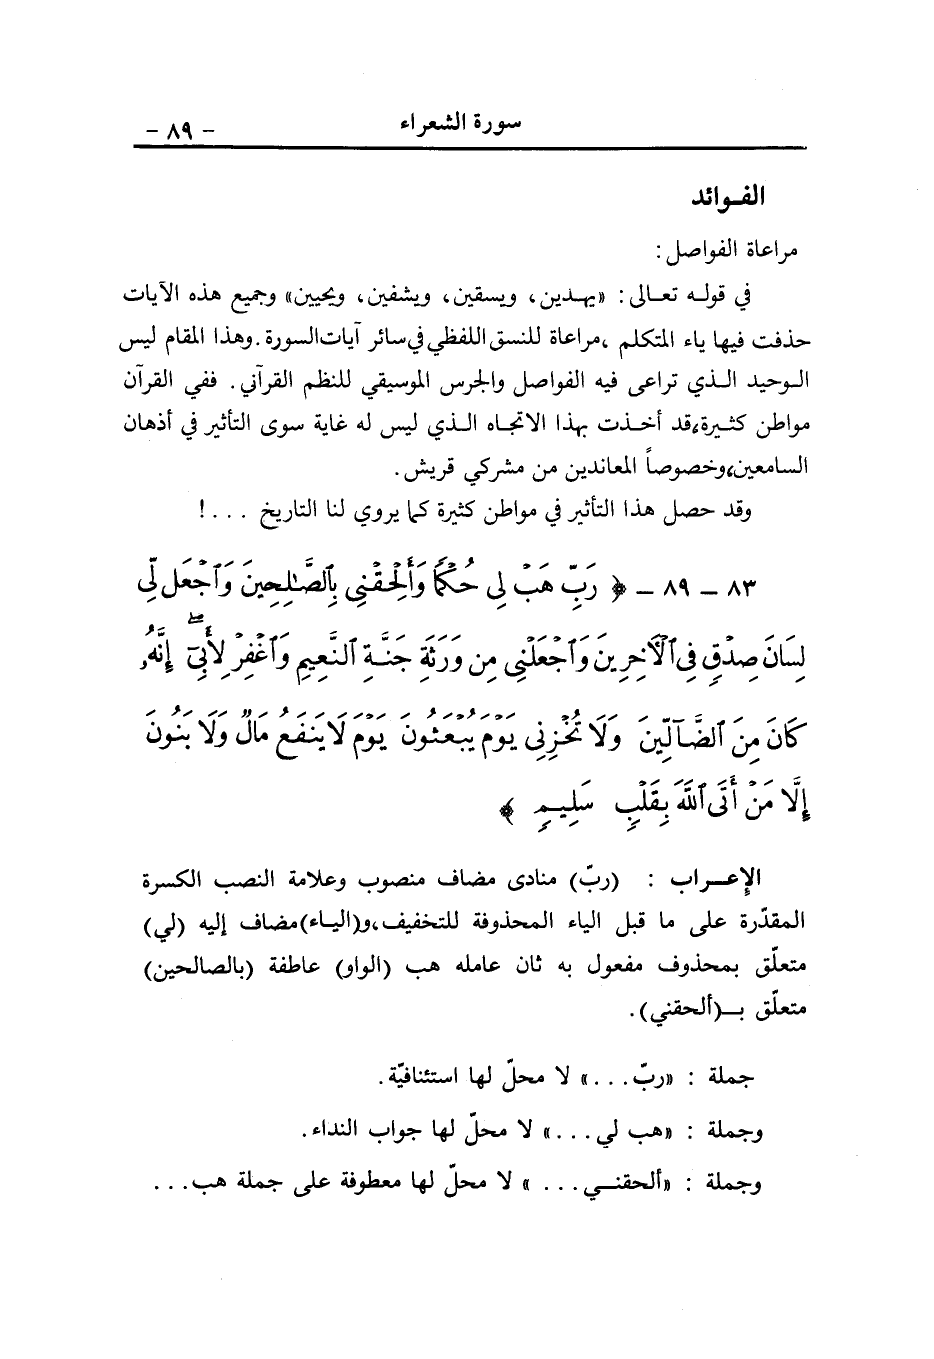 سورة الشعراء - ٨٩ -
الفـوائد
مراعاة الفواصل :
في قولـه تعـالى : «يهـدين ، ويسقين ، ويشفين ، ويحيين» وجميع هذه الآيات
حذفت فيها ياء المتكلم ،مراعاة للنسق اللفظي في سائر آيات السورة . وهذا المقام ليس
الـوحيد الـذي تراعى فيه الفواصل والجرس الموسيقي للنظم القرآني . ففي القرآن
مواطن كثـيرة،قد أخـذت بهـذا الاتجـاه الـذي ليس له غاية سوى التأثير في أذهان
السامعين،وخصوصاً المعاندين من مشركي قريش .
وقد حصل هذا التأثير في مواطن كثيرة كما يروي لنا التاريخ . . . !
٨٣ - ٨٩ - ﴿ رَبِّ هَبْ لِي حُكْمًا وَأَلْحِقْنِي بِٱلصَّٰلِحِينَ وَٱجْعَل لِّي
لِسَانَ صِدْقٍ فِي ٱلْآخِرِينَ وَٱجْعَلْنِي مِن وَرَثَةِ جَنَّةِ ٱلنَّعِيمِ وَٱغْفِرْ لِأَبِيٓ ۖ إِنَّهُۥ
كَانَ مِنَ ٱلضَّآلِّينَ وَلَا تُخْزِنِي يَوْمَ يُبْعَثُونَ يَوْمَ لَا يَنفَعُ مَالٌ وَلَا بَنُونَ
إِلَّا مَنْ أَتَى ٱللَّهَ بِقَلْبٍ سَلِيمٍ ﴾
الإعـراب : (ربّ) منادى مضاف منصوب وعلامة النصب الكسرة
المقدّرة على ما قبل الياء المحذوفة للتخفيف،و(اليـاء)مضاف إليه (لي)
متعلّق بمحذوف مفعول به ثان عامله هب (الواو) عاطفة (بالصالحين)
متعلّق بـ(ألحقني) .
جملة : «ربّ . . .» لا محلّ لها استئنافيّة .
وجملة : «هب لي . . .» لا محلّ لها جواب النداء .
وجملة : «ألحقنـي . . . » لا محلّ لها معطوفة على جملة هب . . .